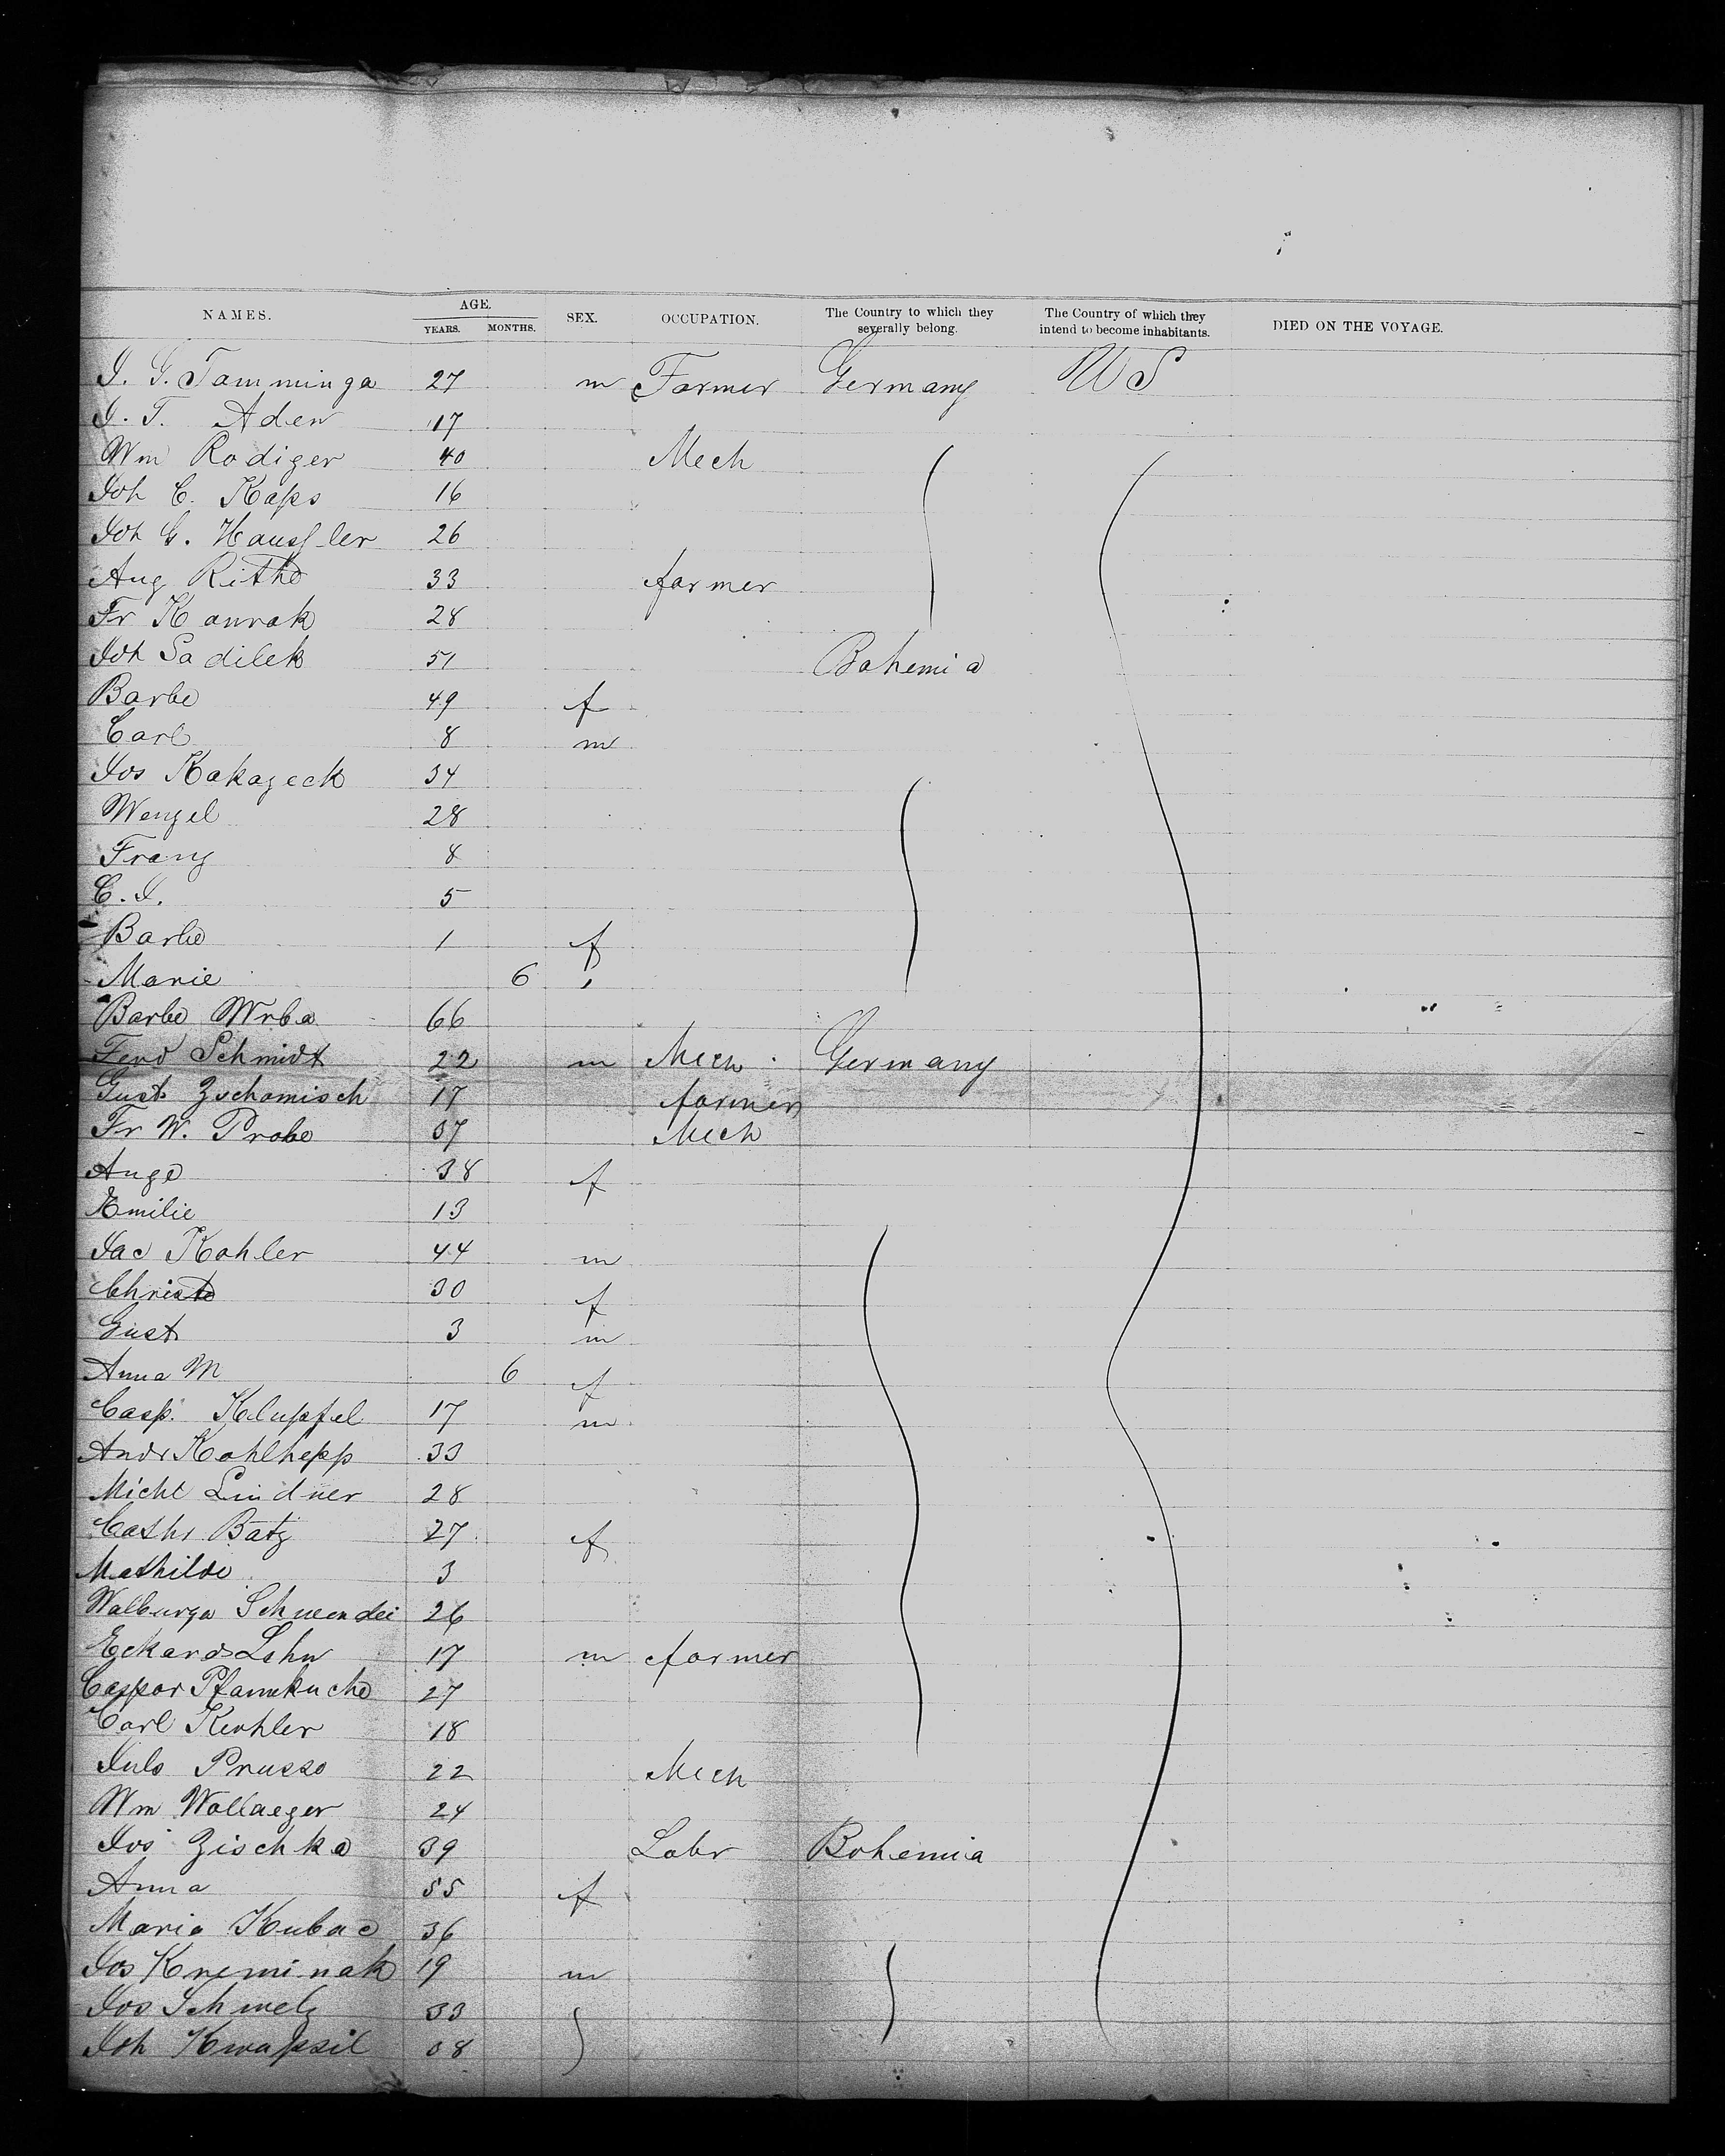 NAMES. AGE. YEARS. MONTHS. SEX. OCCUPATION. The Country to which they severally belong. The Country of which they intend to become inhabitants. DIED ON THE VOYAGE.
J. G. Tamminga 27 m Farmer Germany US
J. T. Aden 17
Wm Rodiger 40 Mech
Joh C. Kaps 16
Joh G. Haussler 26
Aug Rithe 33 farmer
Fr Kanrak 28
Joh Sadilek 51 Bohemia
Barbe 49 f
Carl 8 m
Jos Kakazeck 34
Wenzel 28
Franz 8
C. J. 5
Barbe 1 f
Marie 6 "
Barbe Wrba 66
Ferd Schmidt 22 m Mech Germany
Gust Zschamisch 17 farmer
Fr W. Probe 37 Mech
Auge 38 f
Emilie 13
Jac Kohler 44 m
Christe 30 f
Gust 3 m
Anna M 6 f
Casp. Klupfel 17 m
Andr Kohlhepp 33
Michl Lindner 28
Cathr Batz 27 f
Mathilde 3
Walburga 26
Eckard Lehn 17 m farmer
Caspar Pfannkuche 27
Carl Keohler 18
Juls Prusso 22 Mech
Wm Wollaeger 24
Jos Zischka 39 Labr Bohemia
Anna 55 f
Maria Kubac 36
Jos Kreminak 19 m
Jos Schmelz 33
Joh Kwapsil 38